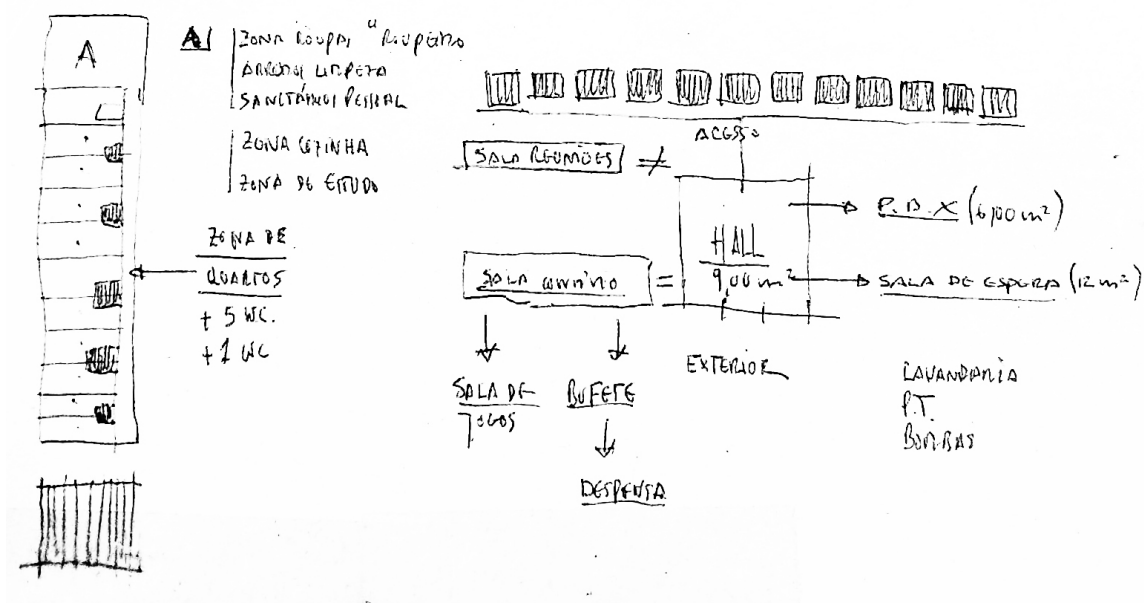 A
A
ZONA ROUPA, "ROUPEIRO
ARRUMOS LIMPEZA
SANITÁRIOS PESSOAL
ZONA COZINHA
ZONA DE ESTUDO
ZONA DE
QUARTOS
+ 5 WC.
+ 1 WC
ACESSO
SALA REUNIÕES ≠
HALL
9,00 m²
P.B.X (6,00 m²)
SALA DE ESPERA (12 m²)
SALA convívio =
SALA DE
JOGOS
BUFETE
DESPENSA
EXTERIOR
LAVANDARIA
P.T.
BOMBAS